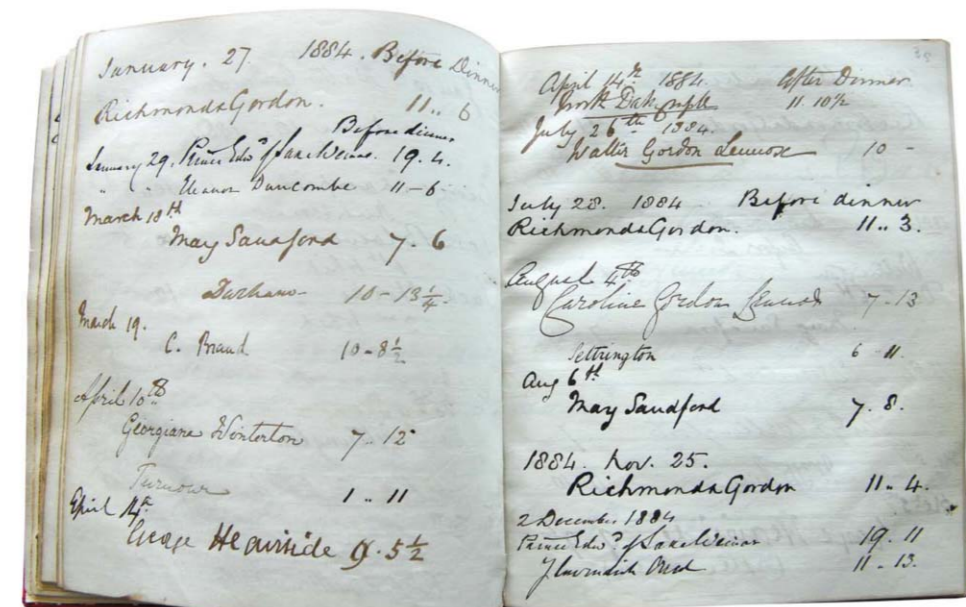 January. 27 1884. Before Dinner
Richmond & Gordon. 11 .. 6
Before dinner
January 29. Prince Edwd of Saxe Weimar. 19. 4.
" " Eleanor Duncombe 11 - 6
March 18th
May Sandford 7. 6
Durham 10 - 13 1/4
March 19.
C. Brand 10 - 8 1/2
April 10th
Georgiana Winterton 7 .. 12
Turnour 1 .. 11
April 14th
George Heaviside 9. 5 1/2
38
April 14th 1884. After Dinner
11 10 1/2
July 26th 1884.
Walter Gordon Lennox 10 -
July 28. 1884 Before dinner
Richmond & Gordon. 11 .. 3.
August 4th
Caroline Gordon Lennox 7 - 13
Settrington 6 - 11.
Aug 6th
May Sandford 7. 8.
1884. Nov. 25.
Richmond & Gordon 11 .. 4.
2 December 1884
Prince Edwd of Saxe Weimar 19. 11
11 - 13.